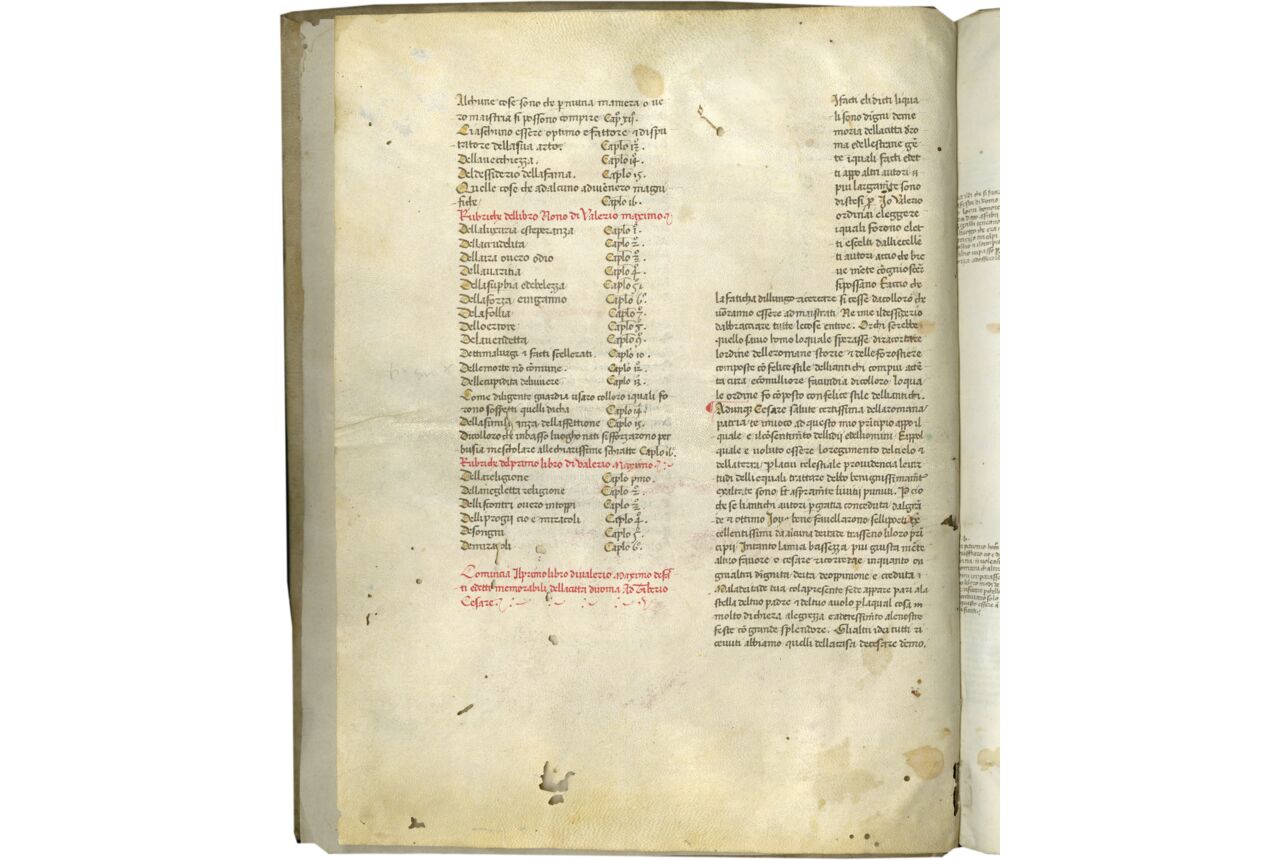 Alchune cose sono che p nuna maniera o ue
ro maistria si possono compire Cap̊ xij.
Ciaschuno essere optimo efattore & dispu
tatore dellasua arte. Caplo 13.
Dellauecchiezza. Caplo 14.
Deldessiderio dellafama. Caplo 15.
Quelle cose che adalcuno aduuenero magni
fiche Caplo 16.
Rubriche dellibro Nono di Valerio maximo
Dellaluxuria esteperanza Caplo 1.
Dellacrudelita Caplo 2.
Dellaira ouero odio Caplo 3.
Dellauaritia Caplo 4.
Dellasupbia edebelezza Caplo 5.
Dellaforza einganno Caplo 6.
Delafollia Caplo 7.
Delloerrore Caplo 8.
Delauendetta Caplo 9.
Dettimaluagi & facti scellerati. Caplo 10.
Dellemorte nō cōmune. Caplo 12.
Dellecupidita deluiuere Caplo 13.
Come diligente guardia usaro colloro iquali fo
rono sospetti quelli dicha Caplo 14.
Dellasimiglianza dellaffettione Caplo 15.
Dicolloro che inbasso luogho nati sisforzarono per
busia mescholare allechiarissime schiatte Caplo 16.
Rubriche delprimo libro di Valerio Maximo
Dellareligione Caplo pmo.
Dellanegletta religione Caplo 2.
Delliscontri ouero intoppi Caplo 3.
Delliprogij cio e miracoli Caplo 4.
Desongni Caplo 5.
Demiracoli Caplo 6.
Comincia Ilprimo libro diualerio Maximo defac
ti edetti memorabili dellacitta diroma Ad Tiberio
Cesare
I facti elidicti liqua
li sono digni deme
moria dellacitta dro
ma edellestrane gē
te iquali facti edet
ti appo altri autori
piu largamte sono
distesi p. Io Valerio
ordinai eleggere
iquali forono elet
ti escelti dalliecellē
ti autori accio che bre
ue mēte cognioscer
sipossano Faccio che
lafaticha dillungo ricercare si cesse dacolloro che
uorāno essere admaistrati. Ne me ildessiderio
dabracciare tutte lecose entroe. Orchi serebbe
quello sauio homo loquale sperasse diracōtare
lordine delleromane storie & delleforestiere
composte cō felice stile delliantichi compiu actē
ta cura ecōmilliore facundia dicolloro loqua
le ordine fo cōposto con felice stile delliantichi.
Adunque Cesare salute certissima dellaromana
patria te inuoco adquesto mio pricipio appo il
quale e ilcōsentimēto dellidij edelliomini. Eappol
quale e uoluto essere loregimento delcielo &
dellaterra. Placiu celestiale prouidencia leuir
tudi delliequali trattare debbo benignissimamte
exaltate sono Et aspramte liuitij puniti. P cio
che se liantichi autori p gratia conceduta dalgrā
de & ottimo Ioue bene fauellarono selliporti ex
cellentissimi da alcuna deitade trasseno liloro pri
cipij. Intanto lamia bassezza piu giusta mēte
altro fauore o cesare ricorerae inquanto on
gnialtra dignita deita deoppinione e creduta &
Maladeitade tua colapresente fede appare pari ala
stella deltuo padre & deltuo auolo p laqual cosa m
molto dichiera alegreza eaderessimēto alenostre
feste cō grande splendore. Glialtri idei tutti ri
ceuuti abbiamo quelli dellacasa decesare demo.